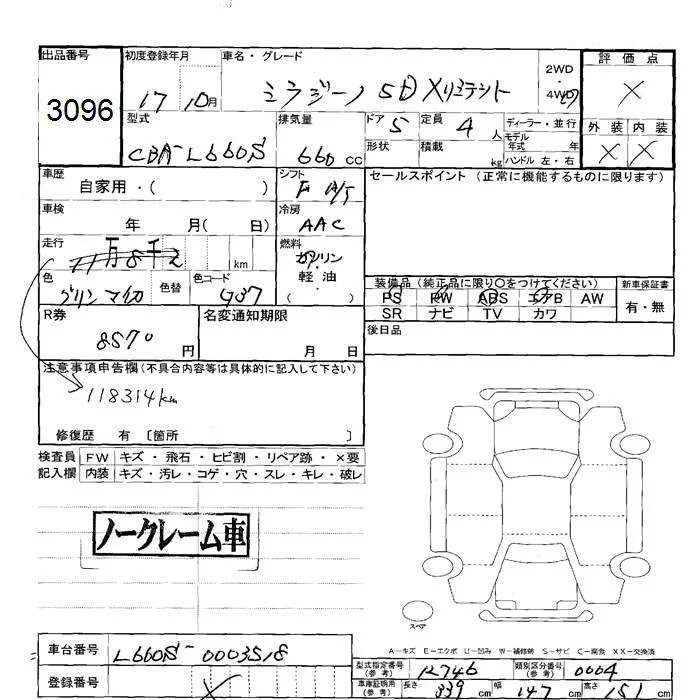 出品番号 3096
初度登録年月 17 10月
車名・グレード ミラジーノ 5D
2WD・4WD
評価点 X
型式 CBA-L660S
排気量 660 cc
ドア 5
定員 4 人
形状
積載 kg
ディーラー・並行
モデル年式 年
ハンドル 左・右
外装 X
内装 X
車歴 自家用・( )
シフト F
セールスポイント (正常に機能するものに限ります)
車検 年 月( 日)
冷房 AAC
走行 km
燃料 ガソリン・軽油・( )
色 グリンマイカ
色替
色コード G37
装備品 (純正品に限り○をつけてください)
PS PW ABS エアB AW
SR ナビ TV カワ
新車保証書 有・無
R券 8570 円
名変通知期限 月 日
後日品
注意事項申告欄(不具合内容等は具体的に記入して下さい)
118314km
修復歴 有 〔箇所 〕
検査員 FW キズ・飛石・ヒビ割・リペア跡・×要
記入欄 内装 キズ・汚レ・コゲ・穴・スレ・キレ・破レ
ノークレーム車
スペア
A-キズ E-エクボ U-凹み W-補修跡 S-サビ C-腐食 XX-交換済
車台番号 L660S-0003518
登録番号 X
型式指定番号(参考) 12746
類別区分番号(参考) 0004
車庫証明用(参考) 長さ 339 cm 幅 147 cm 高さ 151 cm